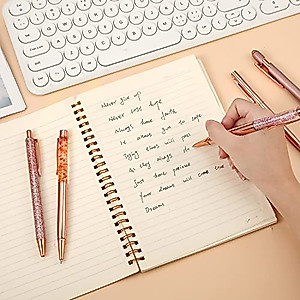 Never give up!
Never lose hope
Always have faith
It allows you to cope
Trying times will pass
As they always do
Just have patience
Your dreams will come true
Dreams